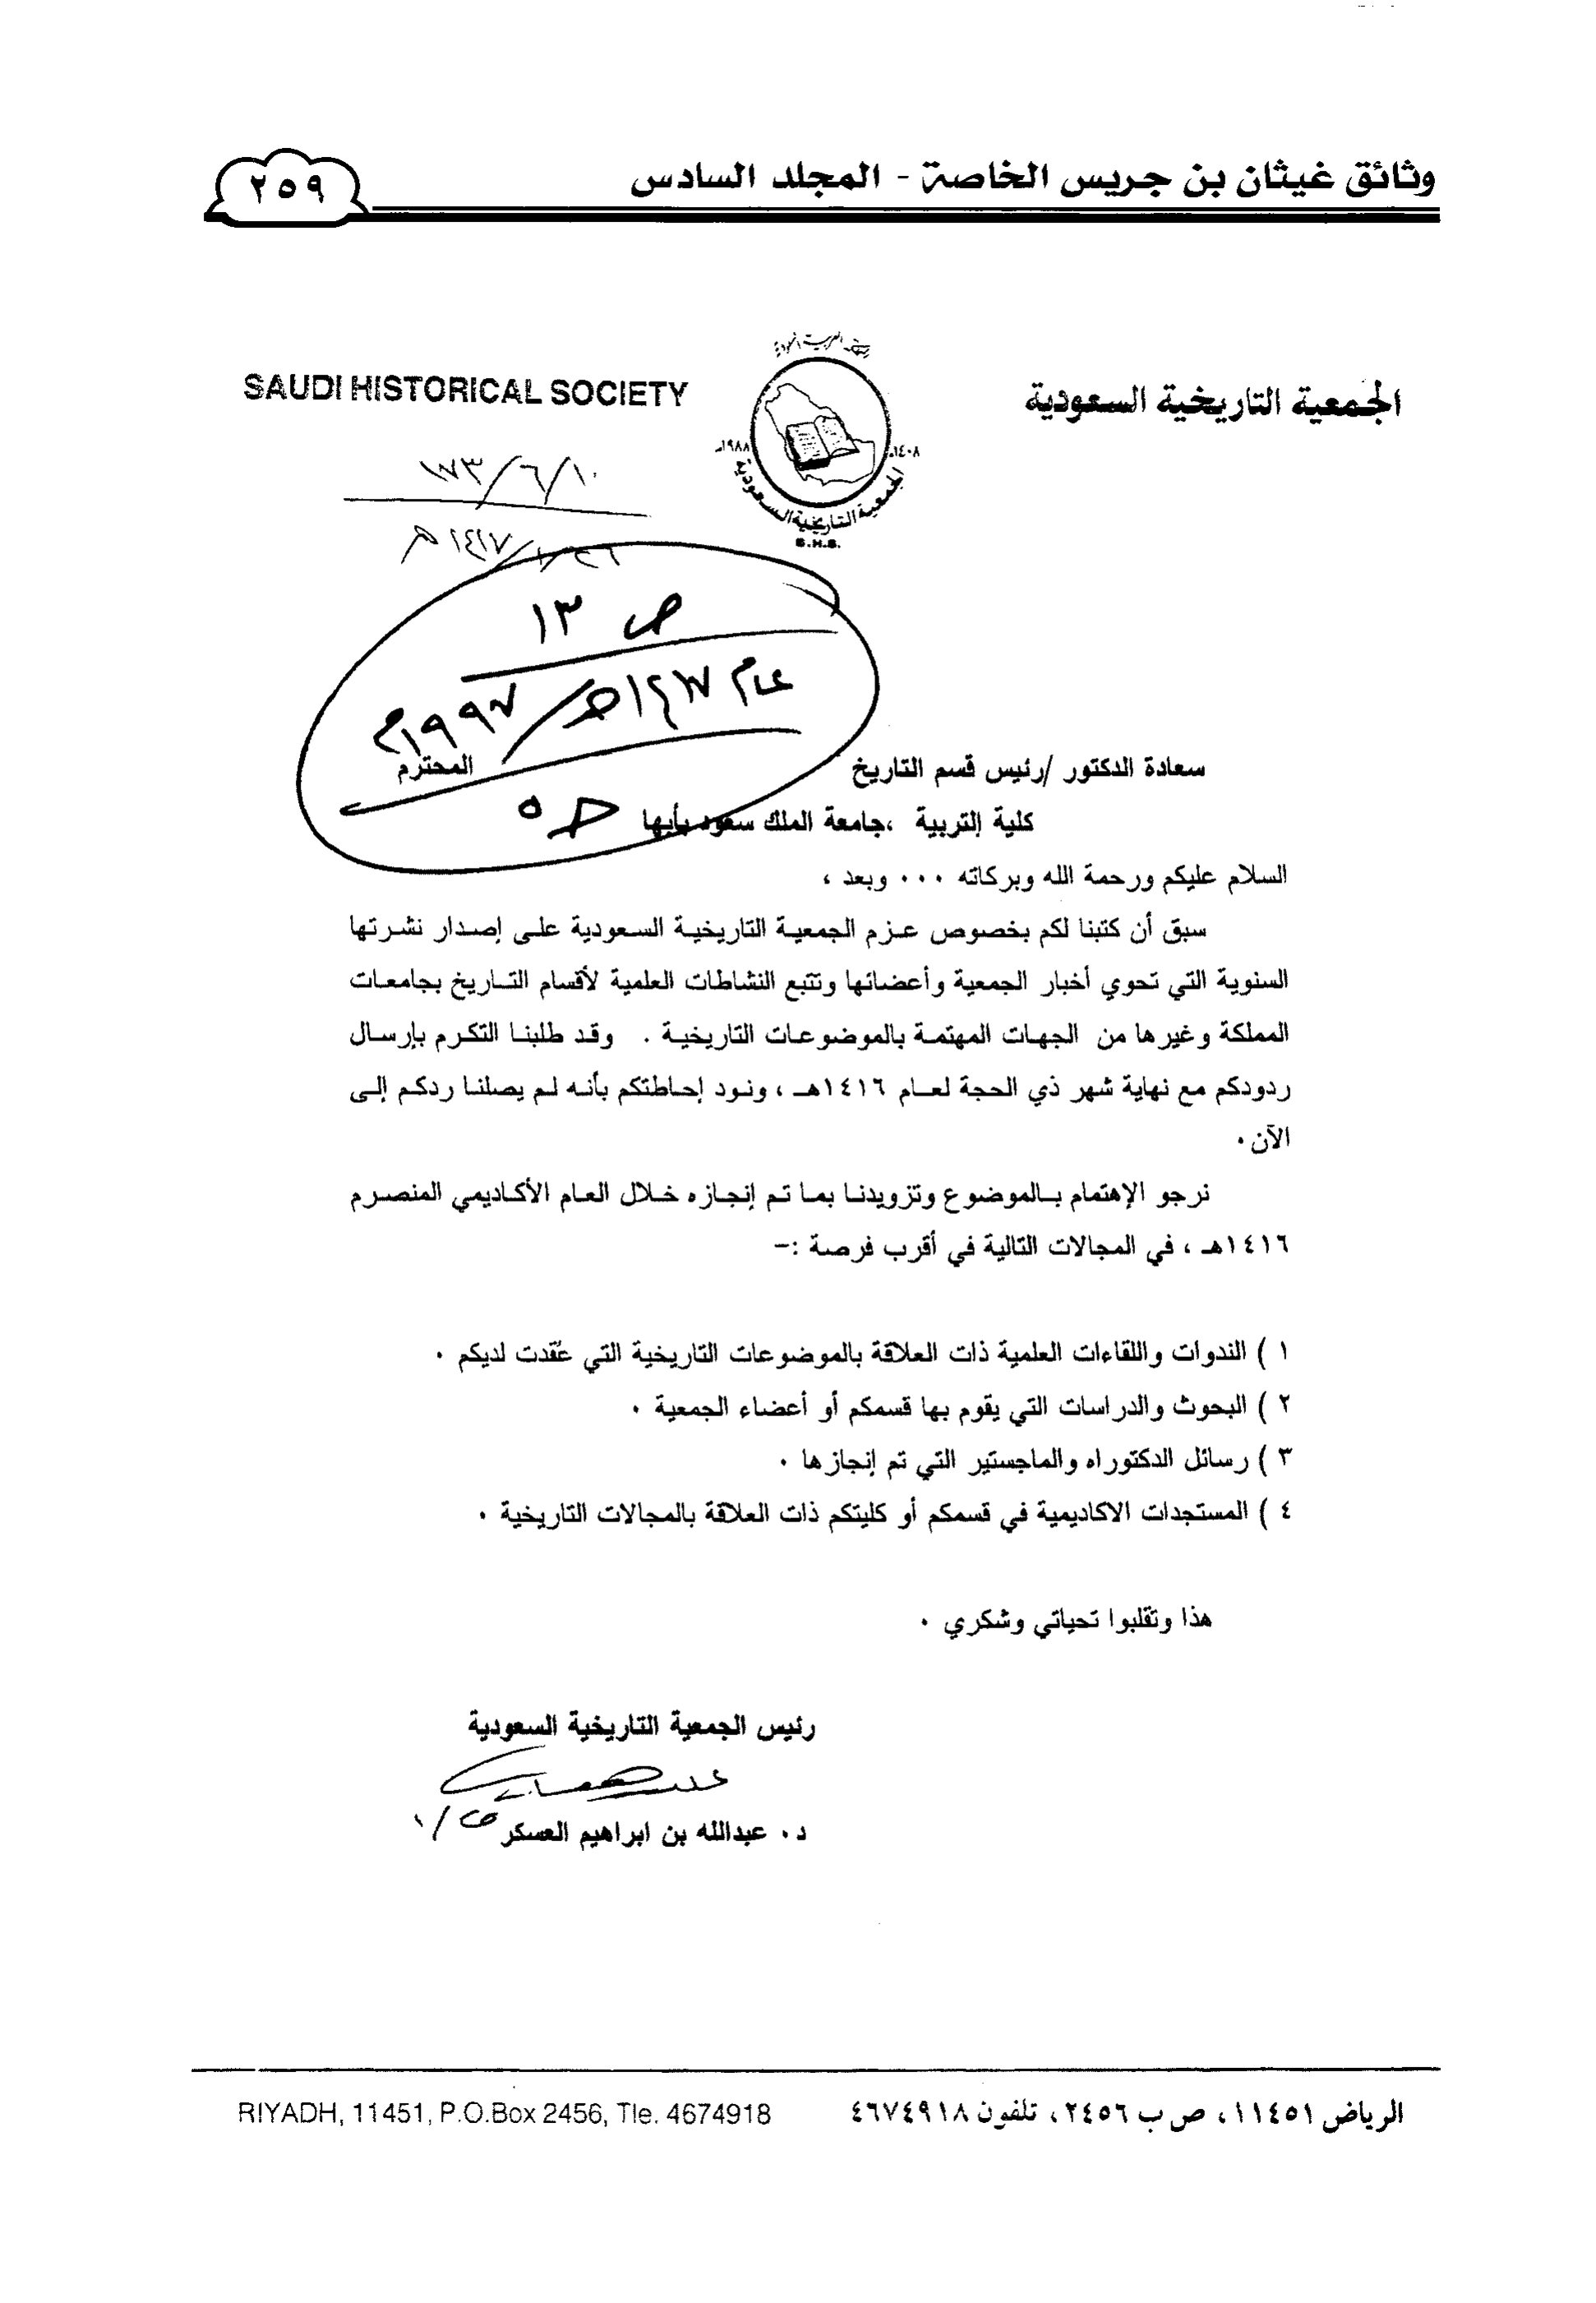 وثائق غيثان بن جريس الخاصة - المجلد السادس
٢٥٩
الجمعية التاريخية السعودية
SAUDI HISTORICAL SOCIETY
١٤٠٨هـ
١٩٨٨م
الجمعية التاريخية السعودية
S.H.S.
١٠/٦/١٧٣
١٤١٧هـ
ص ١٣
عام ١٤١٧هـ/١٩٩٧م
سعادة الدكتور /رئيس قسم التاريخ المحترم
كلية التربية ،جامعة الملك سعود بأبها
السلام عليكم ورحمة الله وبركاته ... وبعد ،
سبق أن كتبنا لكم بخصوص عزم الجمعية التاريخية السعودية على إصدار نشرتها
السنوية التي تحوي أخبار الجمعية وأعضائها وتتبع النشاطات العلمية لأقسام التاريخ بجامعات
المملكة وغيرها من الجهات المهتمة بالموضوعات التاريخية . وقد طلبنا التكرم بإرسال
ردودكم مع نهاية شهر ذي الحجة لعام ١٤١٦هـ ، ونود إحاطتكم بأنه لم يصلنا ردكم إلى
الآن .
نرجو الإهتمام بالموضوع وتزويدنا بما تم إنجازه خلال العام الأكاديمي المنصرم
١٤١٦هـ ، في المجالات التالية في أقرب فرصة :-
١ ) الندوات واللقاءات العلمية ذات العلاقة بالموضوعات التاريخية التي عُقدت لديكم .
٢ ) البحوث والدراسات التي يقوم بها قسمكم أو أعضاء الجمعية .
٣ ) رسائل الدكتوراه والماجستير التي تم إنجازها .
٤ ) المستجدات الاكاديمية في قسمكم أو كليتكم ذات العلاقة بالمجالات التاريخية .
هذا وتقلبوا تحياتي وشكري .
رئيس الجمعية التاريخية السعودية
د . عبدالله بن ابراهيم العسكر
الرياض ١١٤٥١ ، ص ب ٢٤٥٦ ، تلفون ٤٦٧٤٩١٨
RIYADH, 11451, P.O.Box 2456, Tle. 4674918